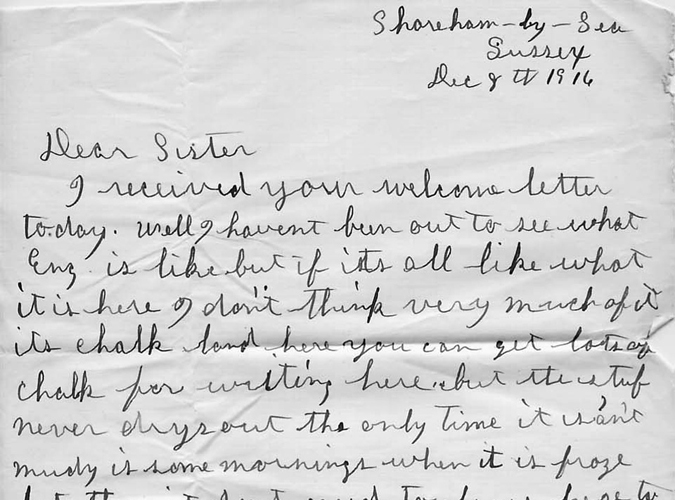 Shoreham-by-Sea
Sussex
Dec 8th 1916
Dear Sister
I received your welcome letter
today. Well I havent been out to see what
Eng. is like but if itts all like what
it is here I don't think very much of it
its chalk land here you can get lots of
chalk for writing here. but the stuf
never drys out the only time it isan't
mudy is some mornings when it is froze